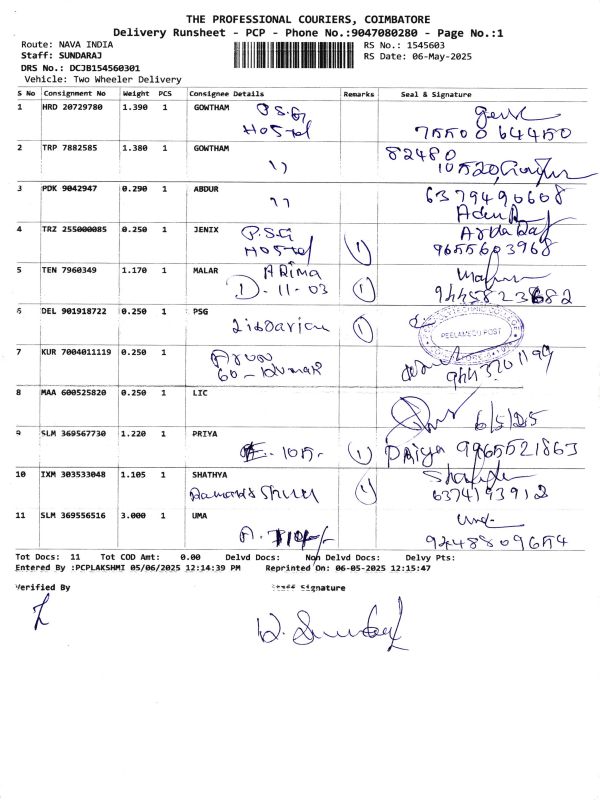 THE PROFESSIONAL COURIERS, COIMBATORE
Delivery Runsheet - PCP - Phone No.:9047080280 - Page No.:1
Route: NAVA INDIA
RS No.: 1545603
Staff: SUNDARAJ
RS Date: 06-May-2025
DRS No.: DCJB154560301
Vehicle: Two Wheeler Delivery
S No Consignment No Weight PCS Consignee Details Remarks Seal & Signature
1 HRD 20729780 1.390 1 GOWTHAM P.S.G
Hostel 75500 64450
2 TRP 7882585 1.380 1 GOWTHAM 82480
11 10520
3 PDK 9042947 0.290 1 ABDUR 6379490608
11
4 TRZ 255000085 0.250 1 JENIX P.S.G
Hostel 1 9655603968
5 TEN 7960349 1.170 1 MALAR ARIMA
D-11-03 1 9445823682
6 DEL 901918722 0.250 1 PSG
1
PEELAMEDU POST
7 KUR 7004011119 0.250 1 ARUN
60-Kumar 9443201199
8 MAA 600525820 0.250 1 LIC
6/5/25
9 SLM 369567730 1.220 1 PRIYA
1015- 1 Priya 9965521863
10 IXM 303533048 1.105 1 SHATHYA
1 6374193912
11 SLM 369556516 3.000 1 UMA
9488809654
Tot Docs: 11 Tot COD Amt: 0.00 Delvd Docs: Non Delvd Docs: Delvy Pts:
Entered By :PCPLAKSHMI 05/06/2025 12:14:39 PM Reprinted On: 06-05-2025 12:15:47
Verified By Staff Signature